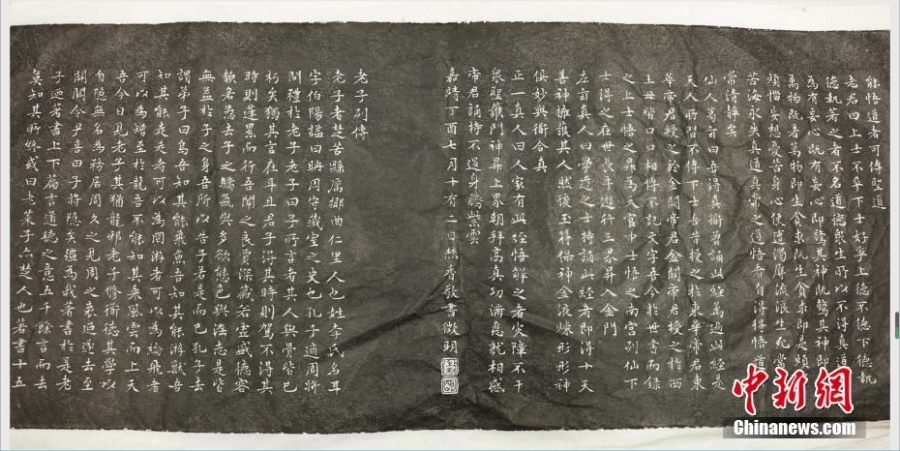 能悟道者可傳聖道
老君曰上士不爭下士好爭上德不德下德執
德執著之者不名道德衆生所以不得真道
為有妄心既有妄心即驚其神既驚其神即
萬物既著萬物即生貪求既生貪求即是煩
煩惱妄想憂苦身心便遭濁辱流浪生死常
苦海永失真道真常之道悟者自得得悟道
常清靜矣
仙人葛翁曰吾得真道曾誦此經萬過此經是
天人所習不傳下士吾昔授之於東華帝君東
華帝君授之於金闕帝君金闕帝君授之於西
王母皆口口相傳不記文字吾今於世書而錄
之上士悟之昇為天官中士悟之南宮列仙下
士得之在世長年遊行三界昇入金門
左玄真人曰學道之士持誦此經者即得十天
善神擁護其人然後玉符保神金液煉形形神
俱妙與道合真
正一真人曰人家有此經悟解之者灾障不干
衆聖護門神昇上界朝拜高真功滿德就相感
帝君誦持不退身騰紫雲
嘉靖丁酉七月十有二日焚香敬書徵明
老子列傳
老子者楚苦縣厲鄉曲仁里人也姓李氏名耳
字伯陽謚曰聃周守藏室之史也孔子適周將
問禮於老子老子曰子所言者其人與骨皆已
朽矣獨其言在耳且君子得其時則駕不得其
時則蓬累而行吾聞之良賈深藏若虛盛德容
貌若愚去子之驕氣與多欲態色與淫志是皆
無益於子之身吾所以告子若是而已孔子去
謂弟子曰鳥吾知其能飛魚吾知其能游獸吾
知其能走走者可以為罔游者可以為綸飛者
可以為矰至於龍吾不能知其乘風雲而上天
吾今日見老子其猶龍邪老子修道德其學以
自隱無名為務居周久之見周之衰迺遂去至
關關令尹喜曰子將隱矣彊為我著書於是老
子迺著書上下篇言道德之意五千餘言而去
莫知其所終或曰老萊子亦楚人也著書十五
中新网
Chinanews.com